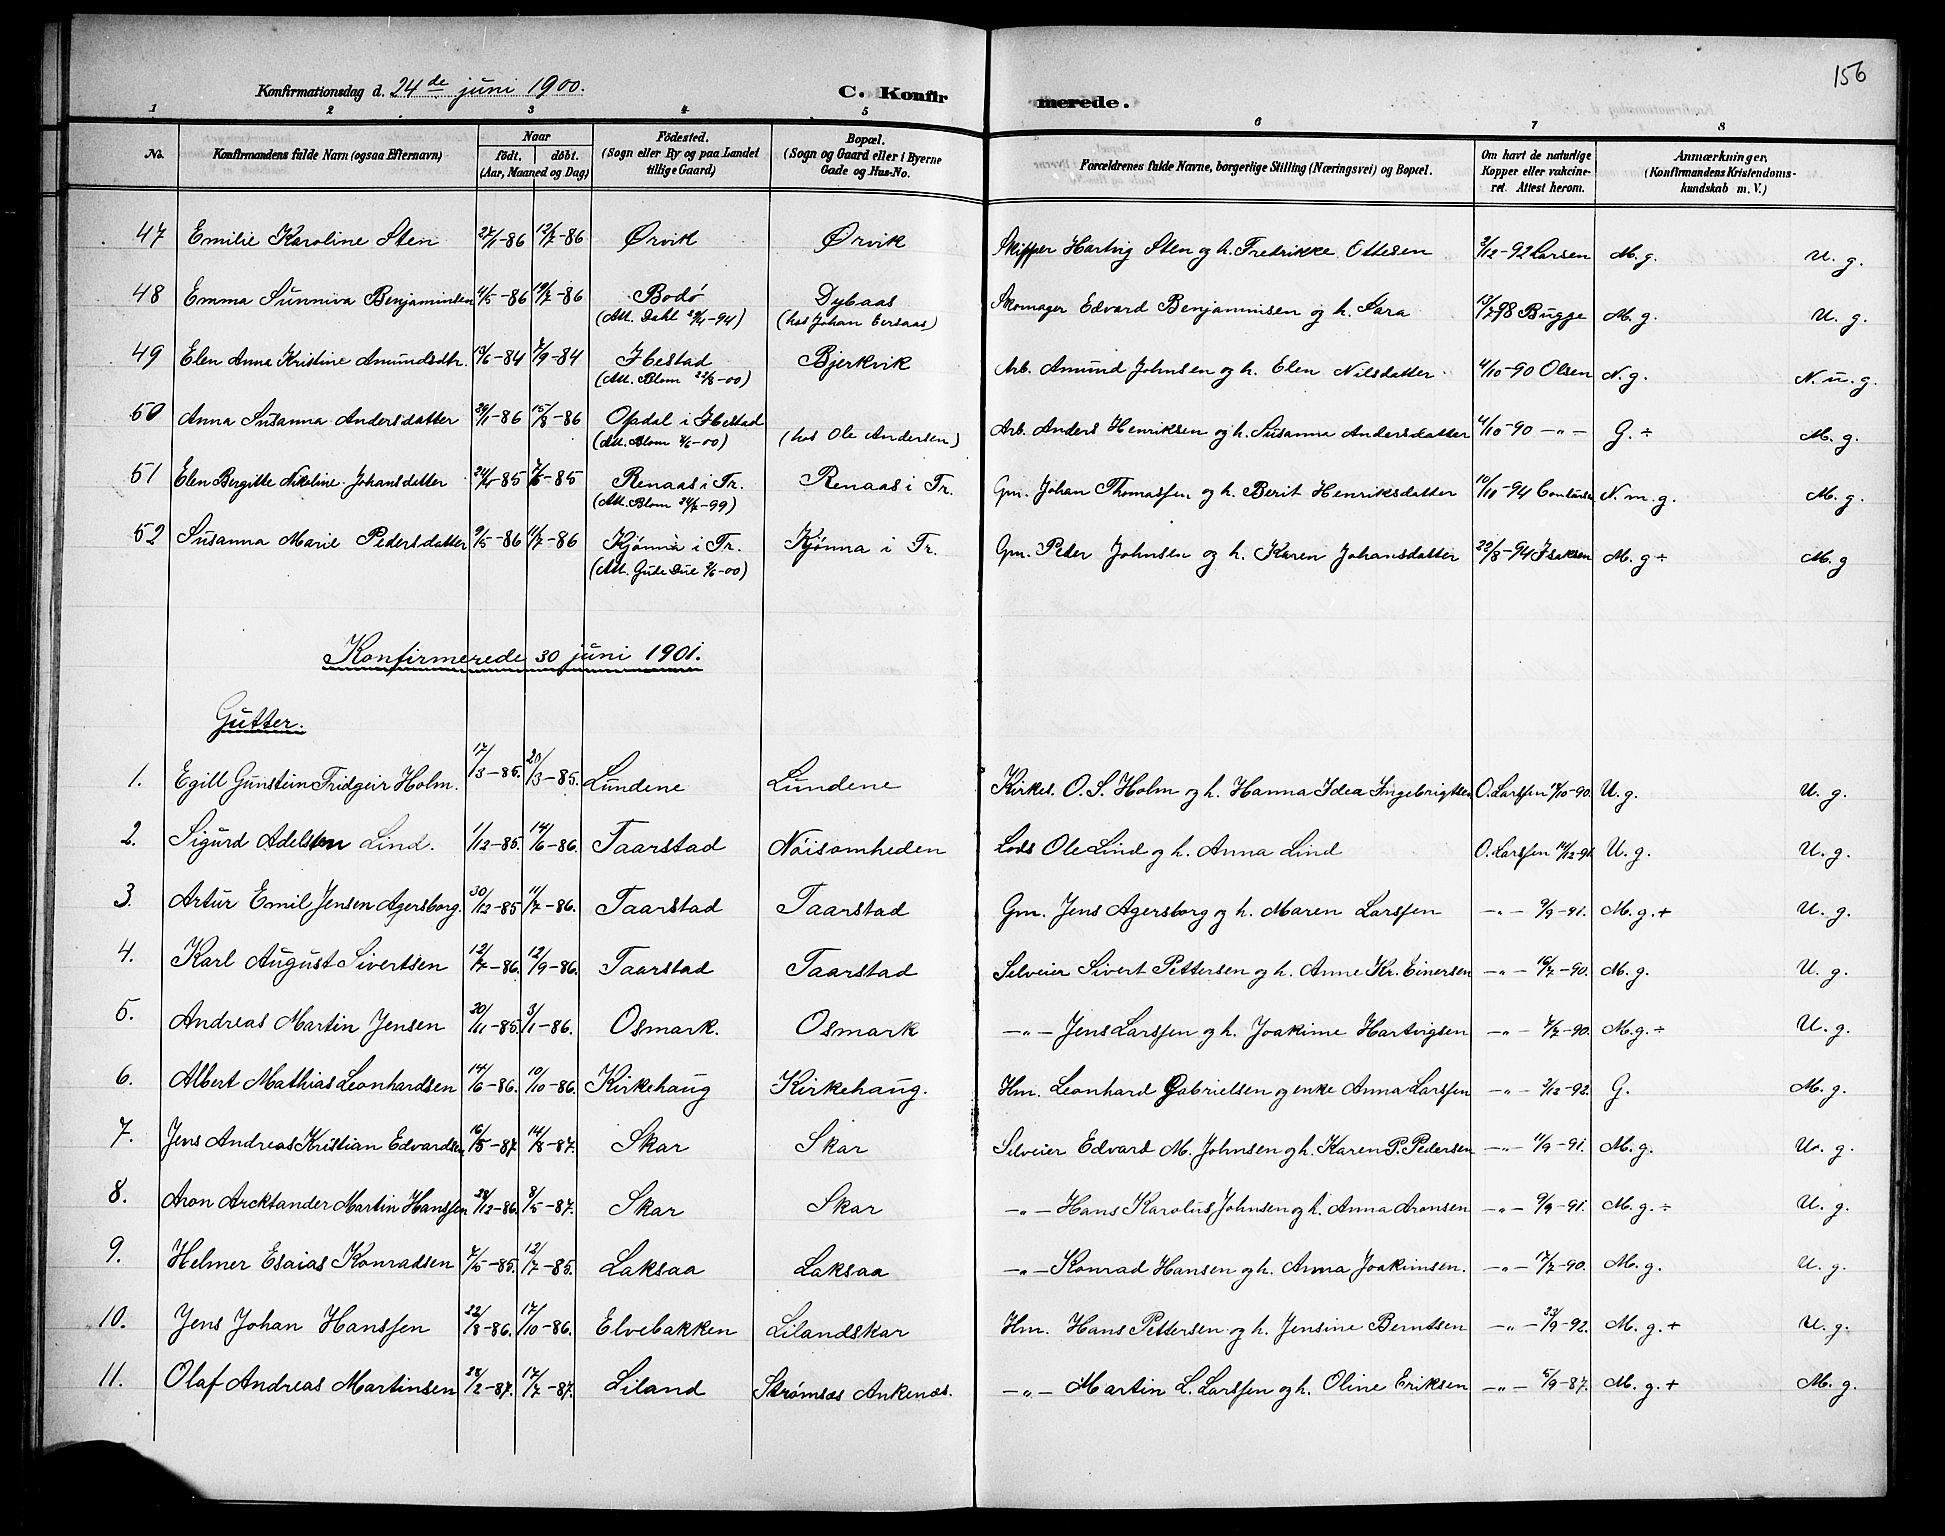 156
Konfirmationsdag d. 24de juni 1900. C. Konfirmerede.
1 2 3 4 5 6 7 8
No. Konfirmandens fulde Navn (ogsaa Efternavn) Naar født. døbt. (Aar, Maaned og Dag) Fødested. (Sogn eller By og paa Landet tillige Gaard) Bopæl. (Sogn og Gaard eller i Byerne Gade og Hus-No. Forældrenes fulde Navne, borgerlige Stilling (Næringsvei) og Bopæl. Om havt de naturlige Kopper eller vakcineret. Attest herom. Anmærkninger. (Konfirmandens Kristendomskundskab m. V.)
47 Emilie Karoline Sten 27/1-86 12/7-86 Ørvik Ørvik Skipper Hartvig Sten og h. Fredrikke Ottesen 3/12-92 Larsen M. g. U. g.
48 Emma Sunniva Benjaminsen 4/5-86 19/7-86 Bodø Dybaas Skomager Edvard Benjaminsen og h. Sara 13/7 98 Bugge M. g. U. g.
(Att. Dahl 29/4-94) (hos Johan Eersaas)
49 Elen Anna Kristine Amundsdtr. 13/6-84 7/9-84 Ibestad Bjerkvik Arb. Amund Johnsen og h. Elen Nilsdatter 4/10-90 Olsen N. g. N. u. g.
(Att. Blom 22/3-00)
50 Anna Susanna Andersdatter 29/1-86 15/8-86 Opdal i Ibestad (hos Ole Andersen) Arb. Anders Henriksen og h. Susanna Andersdatter 4/10-90 -"- G. ÷ M. g.
(Att. Blom 4/6-00)
51 Elen Bergitte Nikoline Johansdatter 24/4-85 7/6-85 Renaas i Tr. Renaas i Tr. Gm. Johan Thomassen og h. Berit Henriksdatter 10/10-94 N. m. g. M. g.
(Att. Blom 24/7-99)
52 Susanna Marie Pedersdatter 9/5-86 11/7-86 Kjønna i Tr. Kjønna i Tr. Gm. Peder Johnsen og h. Karen Johansdatter 22/8-94 Isaksen M. g ÷ M. g
(Att. Gude Due 2/6-00)
Konfirmerede 30 juni 1901.
Gutter.
1. Egill Gunstein Fridgeir Holm. 17/3-85. 20/3-85. Lundene Lundene Kirkes. O. S. Holm og h. Hanna Idea Ingebrigtsen O. Larssen 14/10-90. U. g. U. g.
2. Sigurd Adelsten Lind. 1/12-85. 14/6-86. Taarstad Nøisomheden Lods Ole Lind og h. Anna Lind O. Larssen 14/12-91. U. g. U. g.
3. Artur Emil Jensen Agersborg. 30/12-85 11/7-86. Taarstad Taarstad Gm. Jens Agersborg og h. Maren Larssen -"- 9/9-91. M. g. + U. g.
4. Karl August Sivertsen 12/7-86. 12/9-86. Taarstad Taarstad Selveier Sivert Pettersen og h. Anne Kr. Einersen -"- 16/7-90. M. g. U. g.
5. Andreas Martin Jensen 30/11-85. 3/1-86. Osmark. Osmark -"- Jens Larssen og h. Joakime Hartvigsen -"- 7/7-90. M. g. ÷ U. g.
6. Albert Mathias Leonhardsen 14/6-86. 10/10-86. Kirkehaug Kirkehaug. Hm. Leonhard Gabrielsen og enke Anna Larssen -"- 2/12-92. G. M. g.
7. Jens Andreas Kristian Edvardsen 16/5-87. 14/8-87. Skar Skar Selveier Edvard M. Johnsen og h. Karen P. Pedersen -"- 11/9-91. M. g. U. g.
8. Aron Arcktander Martin Hanssen 28/12-86. 8/5-87. Skar Skar -"- Hans Karolus Johnsen og h. Anna Aronsen -"- 9/9-91. M. g. ÷ U. g.
9. Helmer Esaias Konradsen 7/5-85. 12/7-85. Laksaa Laksaa -"- Konrad Hansen og h. Anna Joakimsen. -"- 17/7-90. M. g. U. g.
10. Jens Johan Hanssen 22/8-86. 17/10-86. Elvebakken Lilandskar Hm. Hans Pettersen og h. Jensine Berntsen -"- 23/9-92. M. g. + U. g.
11. Olaf Andreas Martinsen 28/2-87. 17/7-87. Liland Strømsøs Ankenæs. -"- Martin L. Larssen og h. Oline Eriksen -"- 5/9-87. M. g. + M. g.